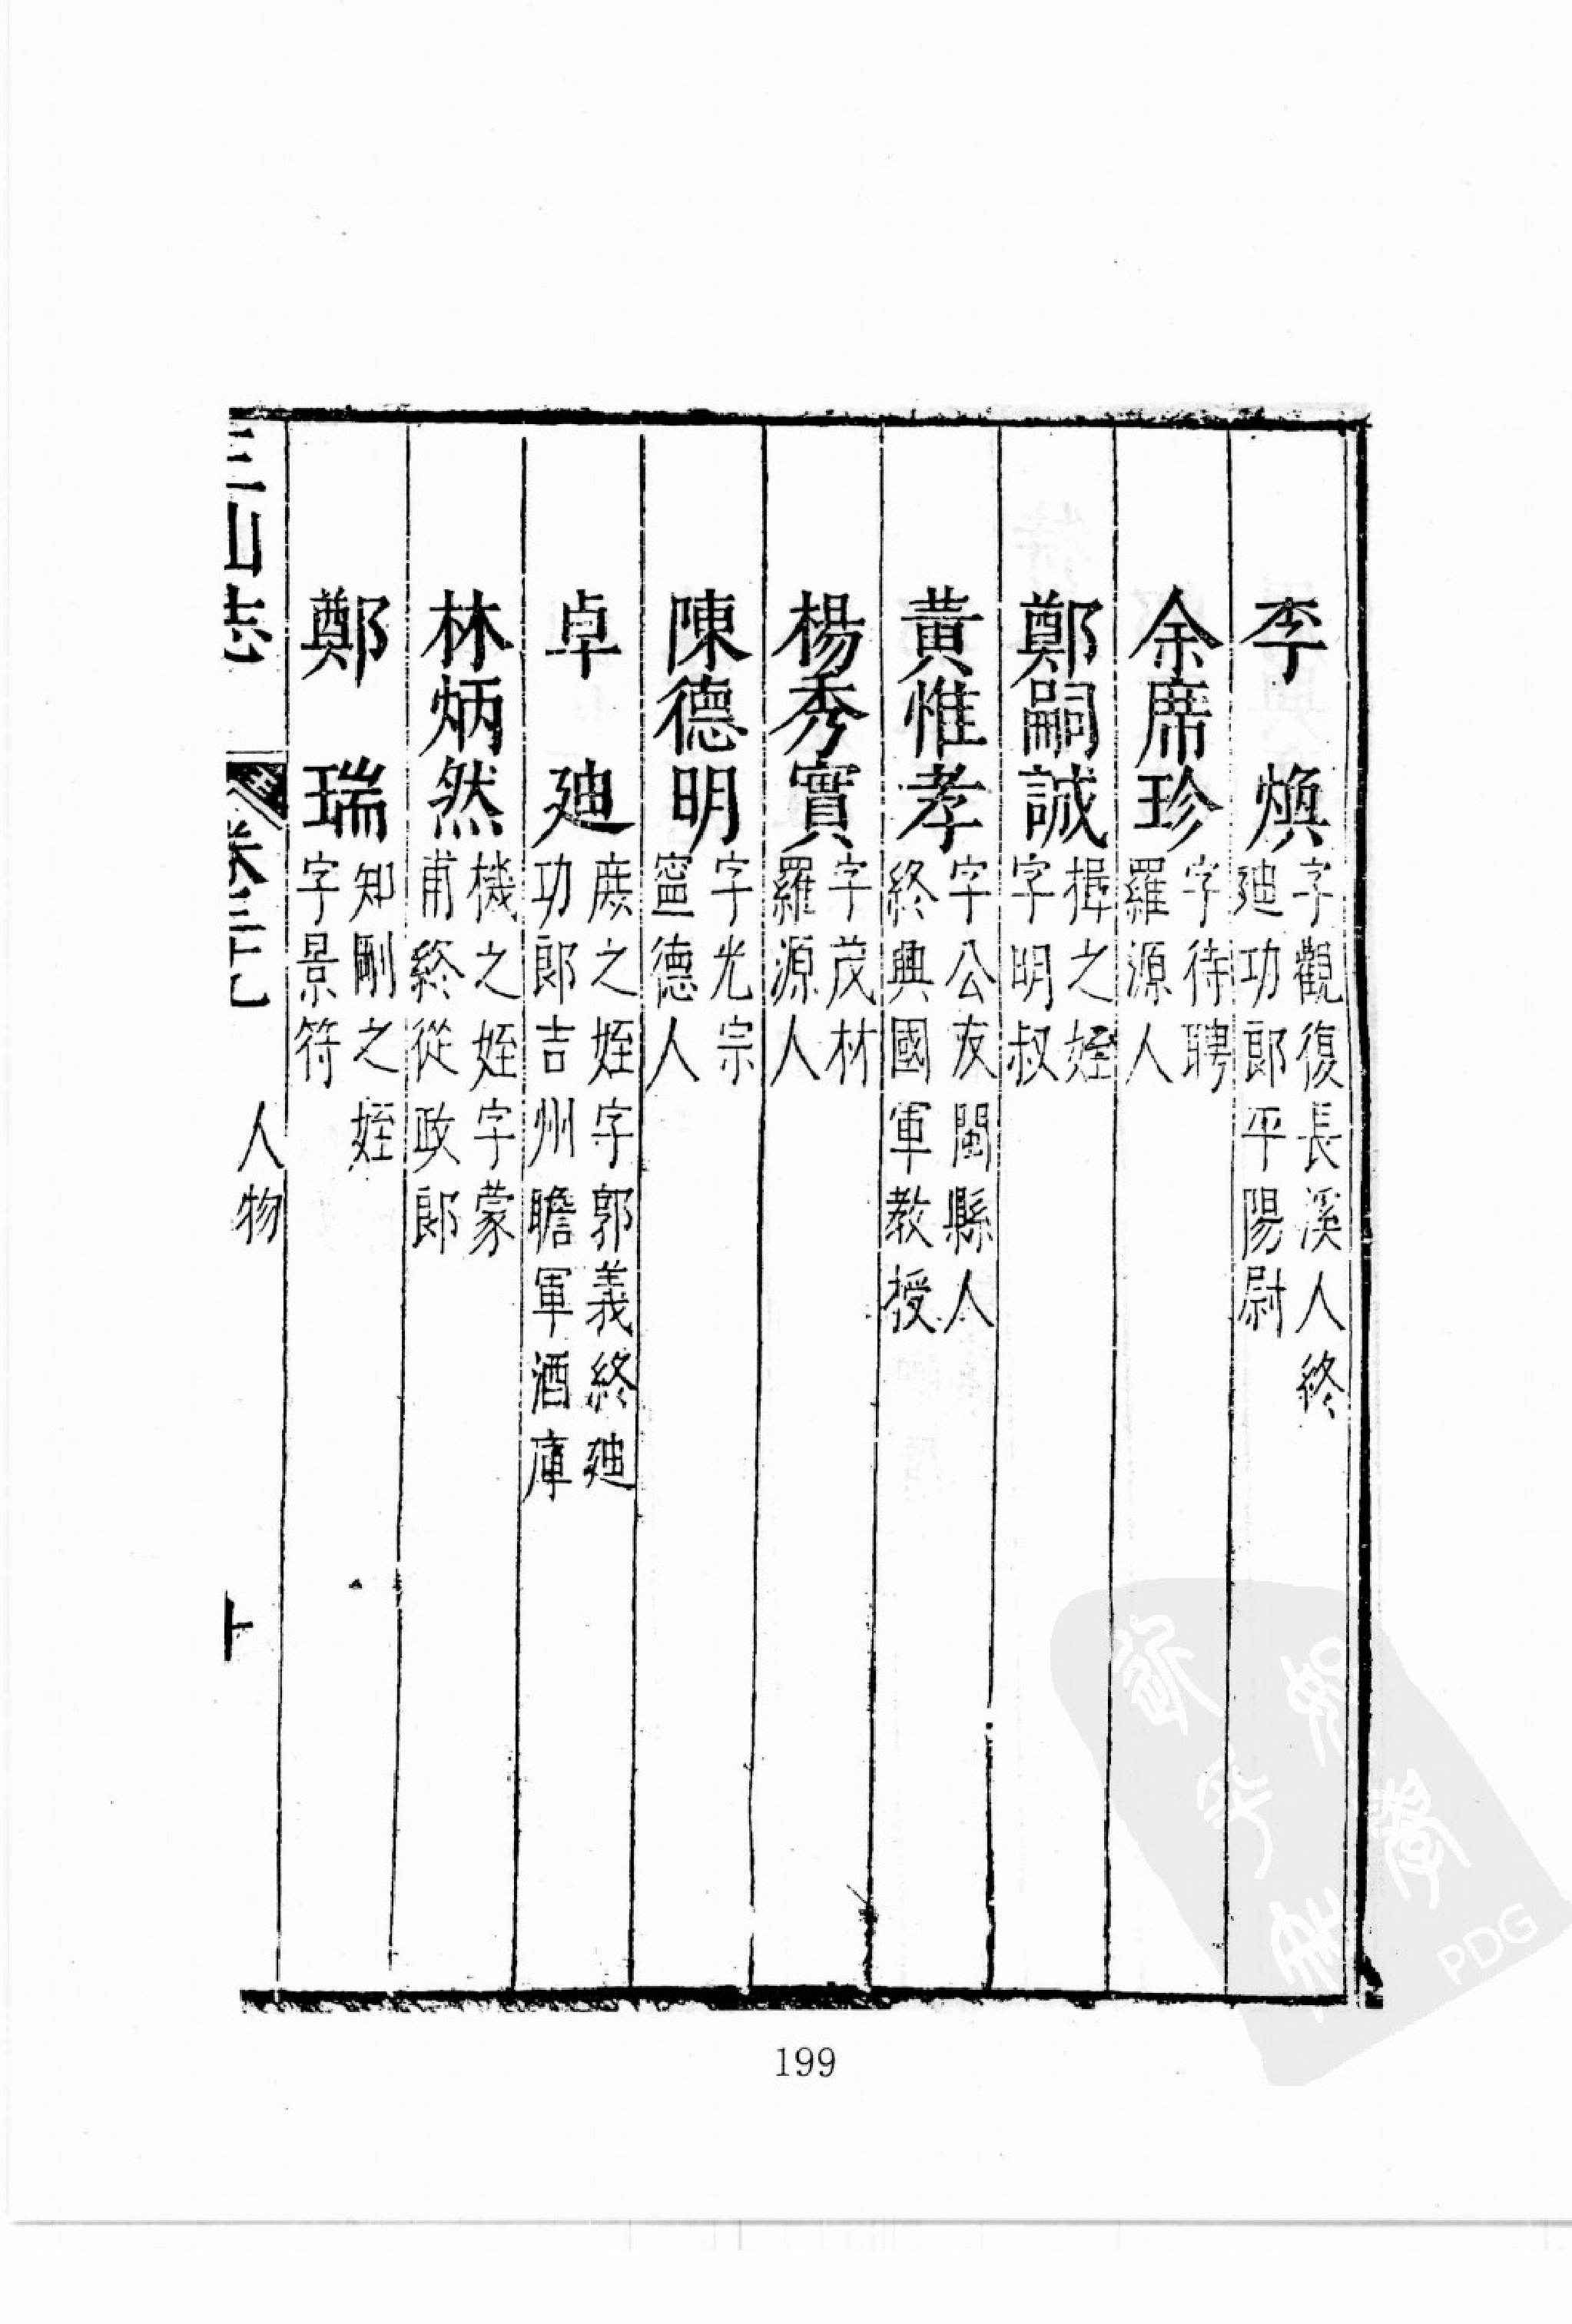 李　煥字觀復長溪人終廸功郎平陽尉
余席珍字待聘羅源人
鄭嗣誠揖之姪字明叔
黃惟孝字公友閩縣人終興國軍教授
楊秀實字茂材羅源人
陳德明字光宗寧德人
卓　廸庶之姪字郭義終廸功郎吉州瞻軍酒庫
林炳然機之姪字蒙甫終從政郎
鄭　瑞知剛之姪字景符
三山志　卷二十九　人物　十
199
PDG